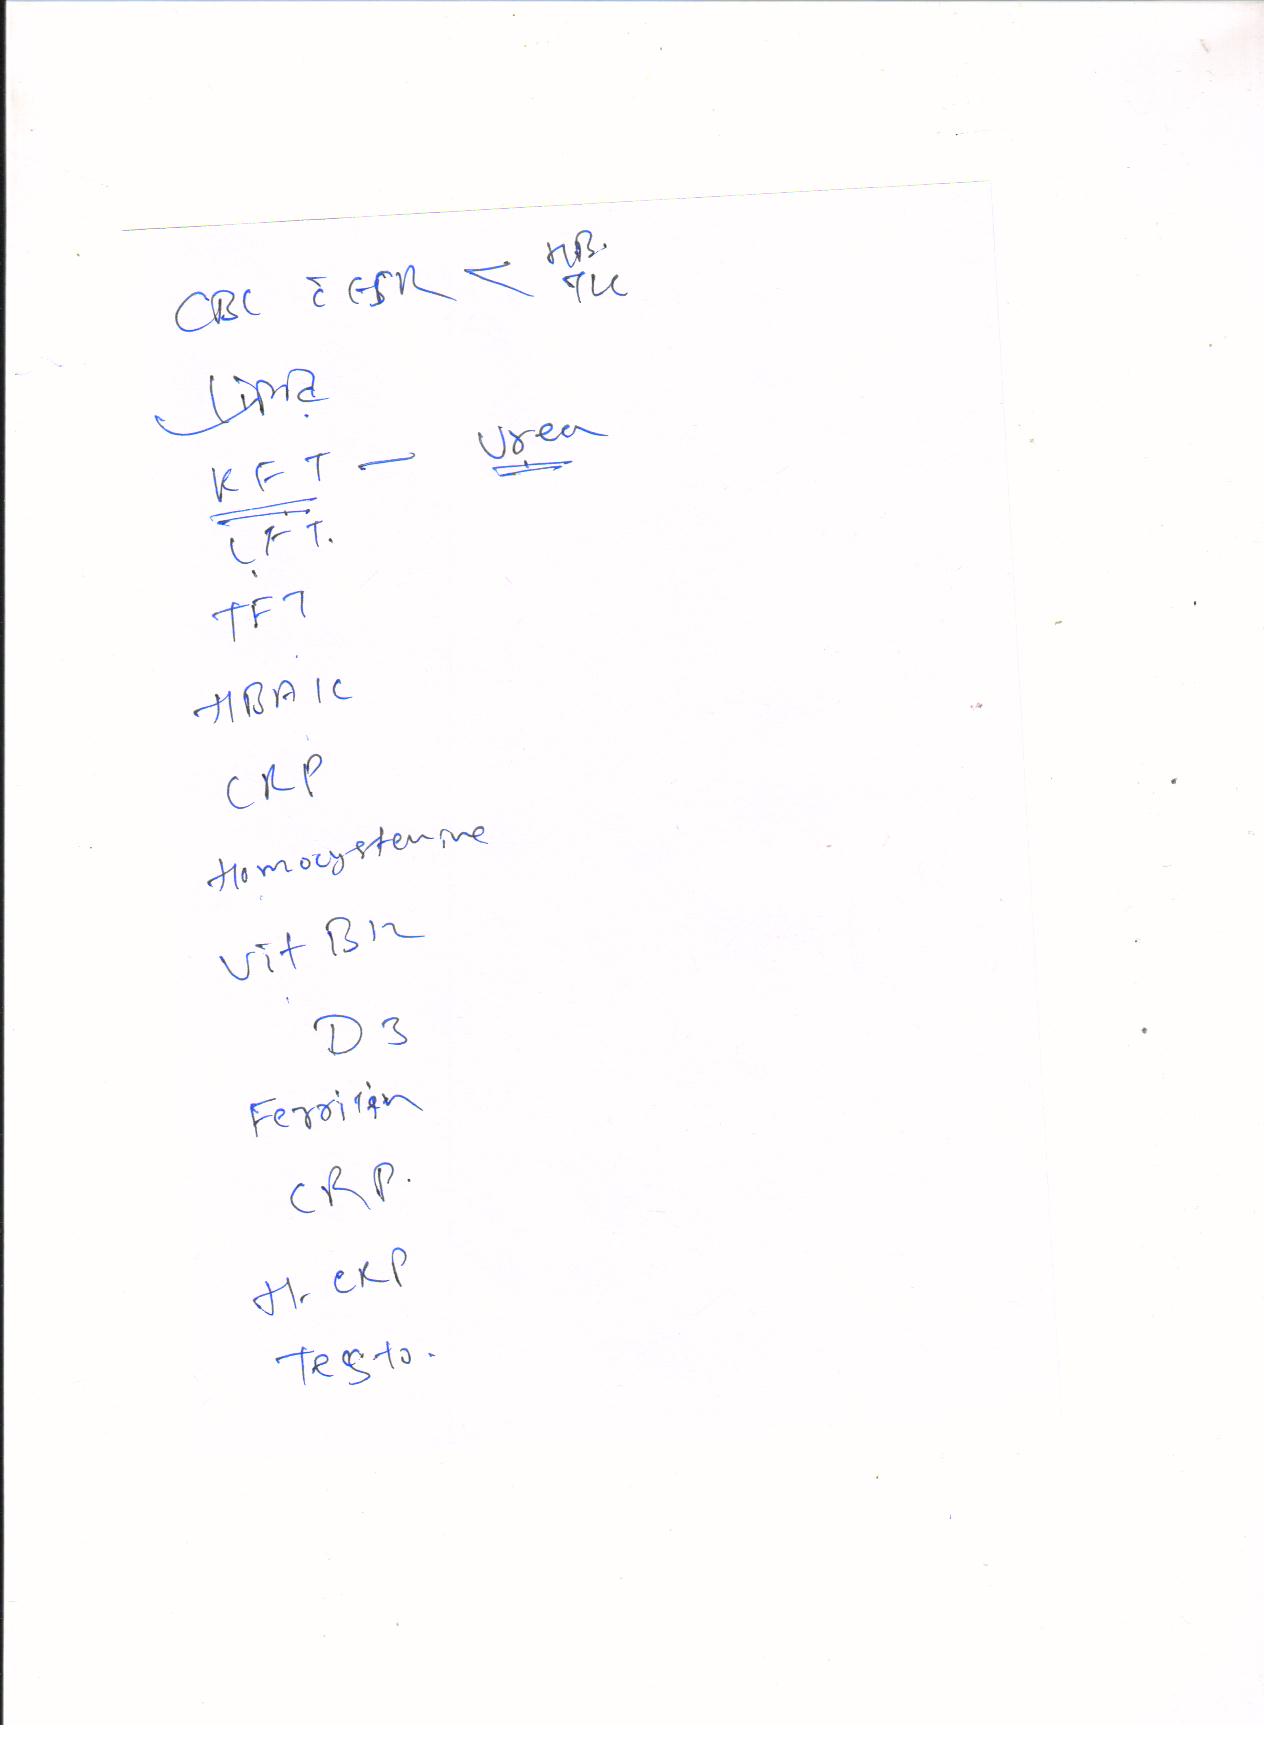 CBC c̄ ESR < HB.
TLC
Lipid
KFT — Urea
LFT.
TFT
HBA1C
CRP
Homocystenine
Vit B12
D3
Ferritin
CRP.
H. CRP
Testo.